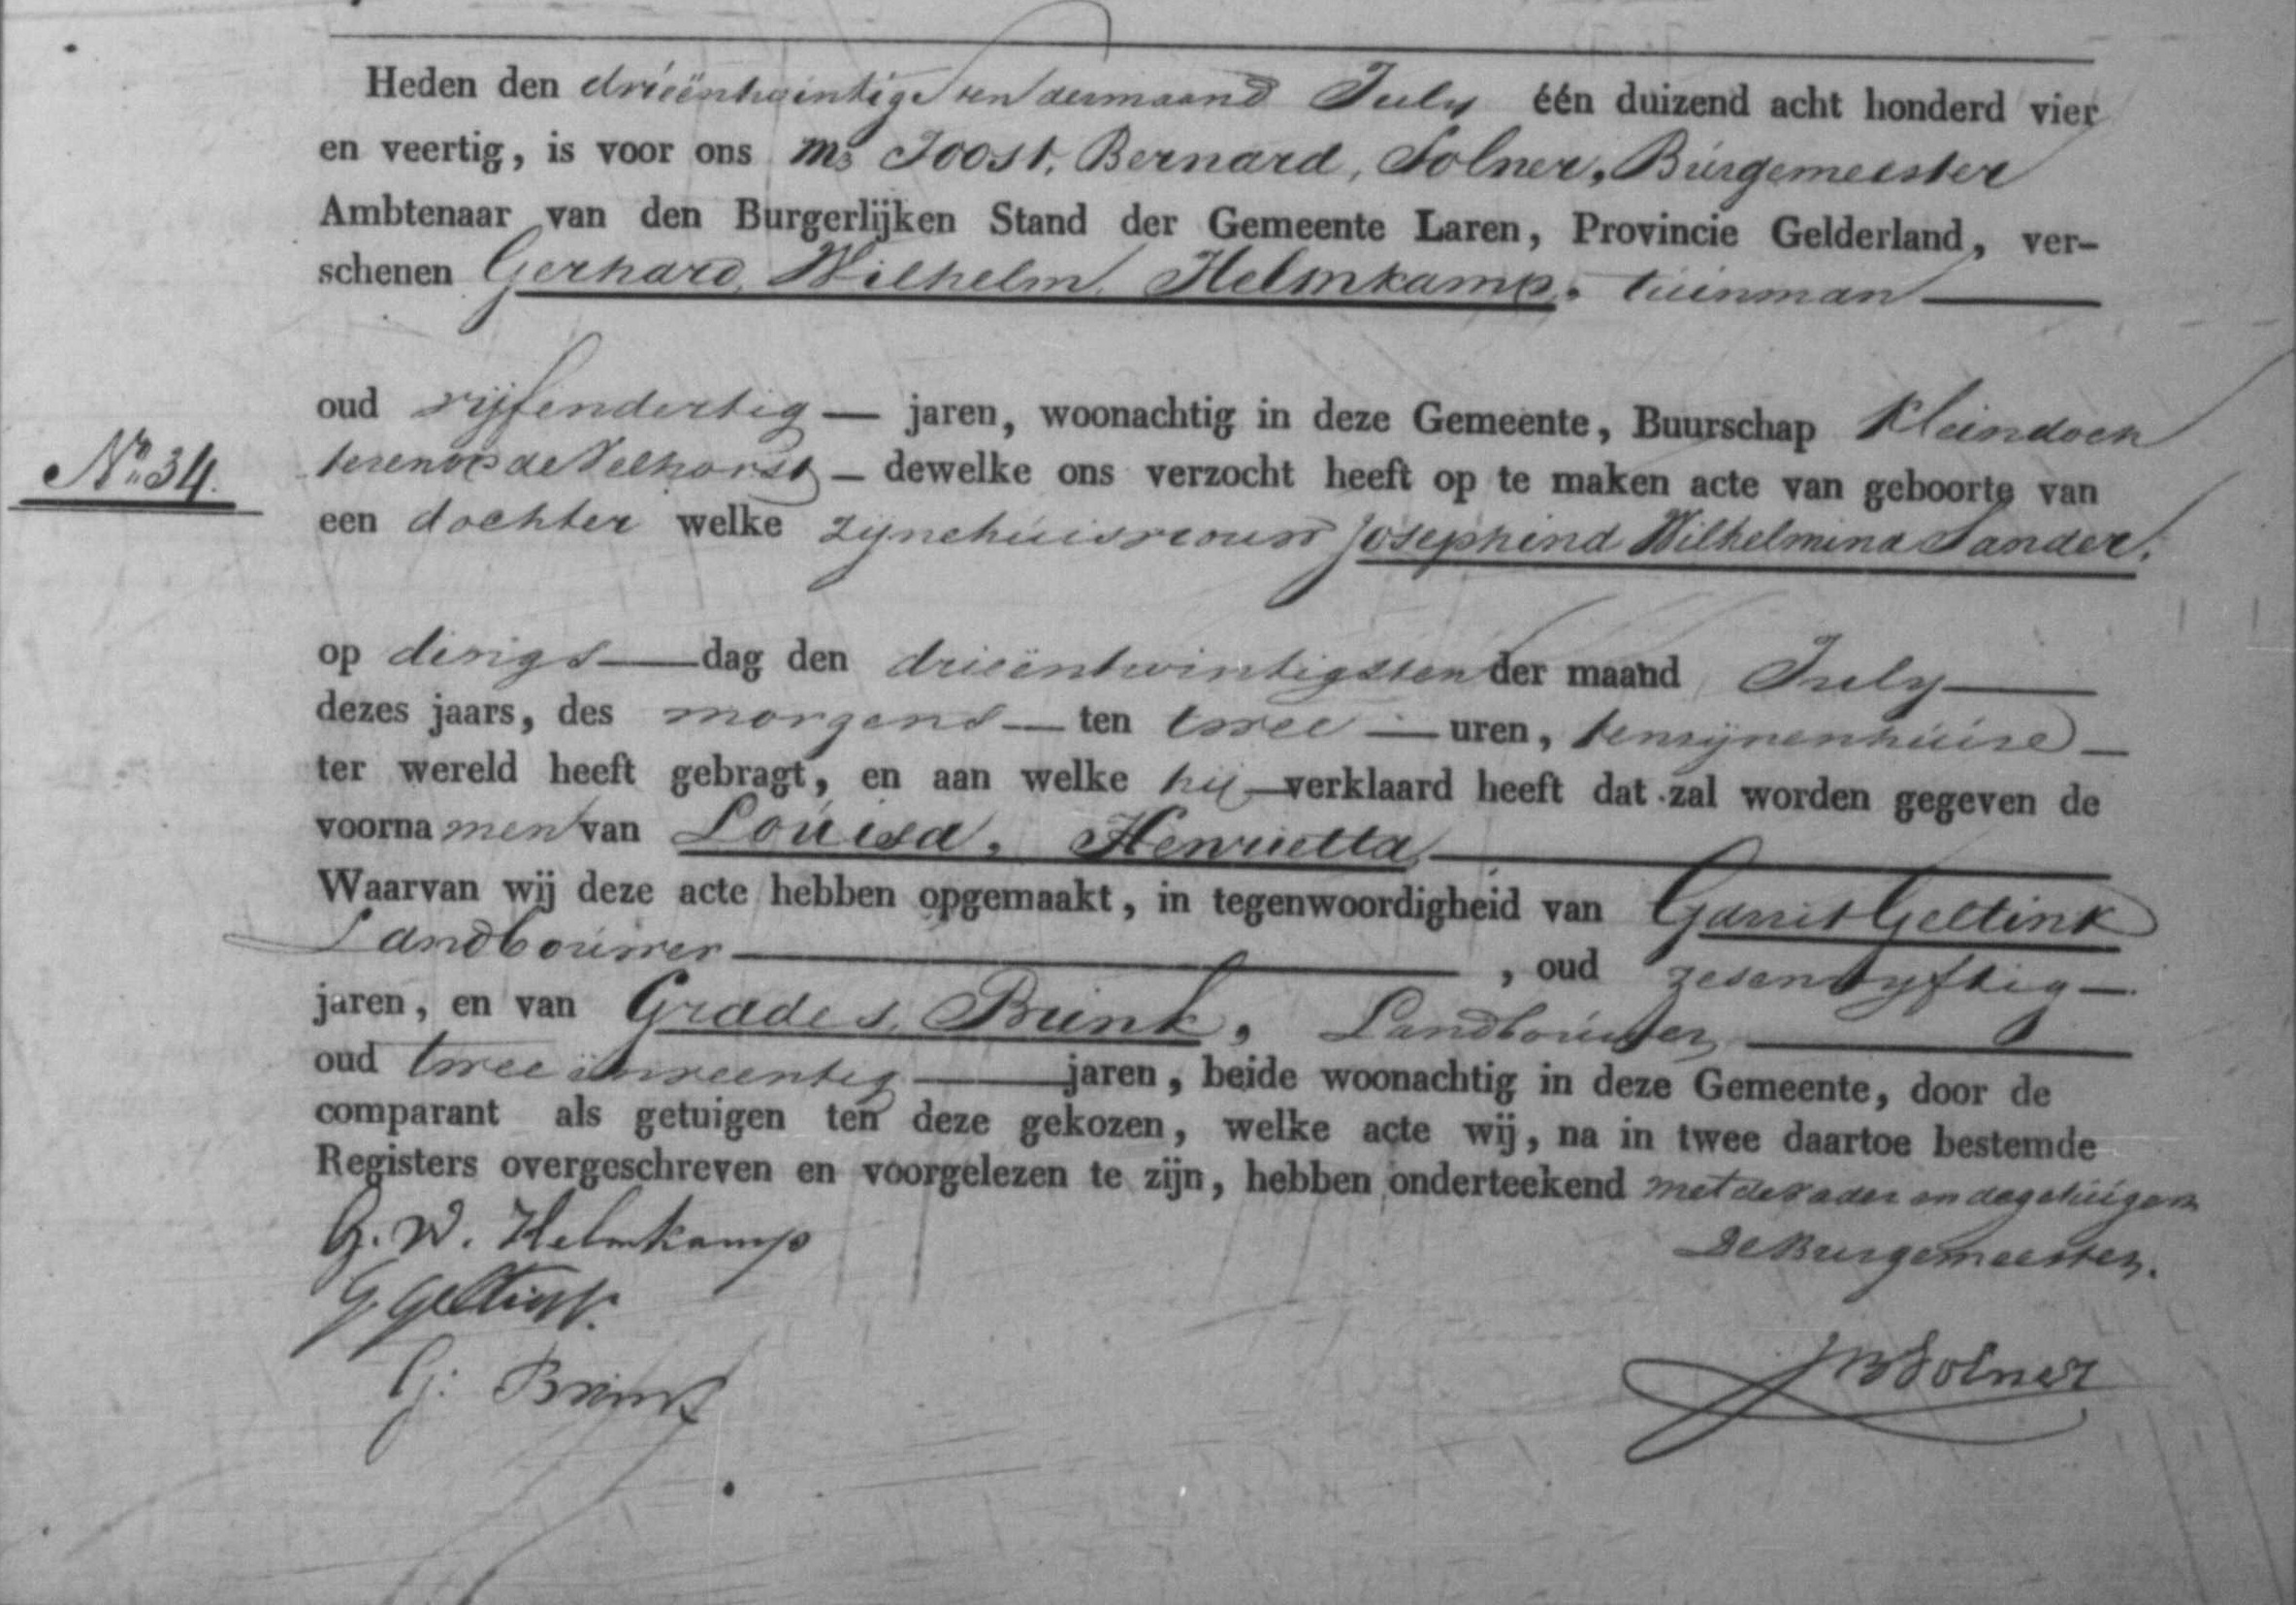 Heden den drieëntwintigsten der maand July één duizend acht honderd vier
en veertig, is voor ons Mr Joost, Bernard, Solner, Burgemeester
Ambtenaar van den Burgerlijken Stand der Gemeente Laren, Provincie Gelderland, ver-
schenen Gerhard, Wilhelm, Helmkamp, tuinman
oud vijfendertig jaren, woonachtig in deze Gemeente, Buurschap Kleindoch
teren op de Velhorst dewelke ons verzocht heeft op te maken acte van geboorte van
No 34.
een dochter welke zijne huisvrouw Josephina Wilhelmina Sander.
op dings dag den drieëntwintigsten der maand July
dezes jaars, des morgens ten twee uren, ten zijnen huize
ter wereld heeft gebragt, en aan welke hij verklaard heeft dat zal worden gegeven de
voornamen van Louisa, Henrietta
Waarvan wij deze acte hebben opgemaakt, in tegenwoordigheid van Garrit Geltink
Landbouwer, oud zesenvyftig
jaren, en van Grades Brink, Landbouwer
oud jaren, beide woonachtig in deze Gemeente, door de
comparant als getuigen ten deze gekozen, welke acte wij, na in twee daartoe bestemde
Registers overgeschreven en voorgelezen te zijn, hebben onderteekend met de vader en de getuigen
G. W. Helmkamp
De Burgemeester.
G Geltink.
J B Solner
G: Brink